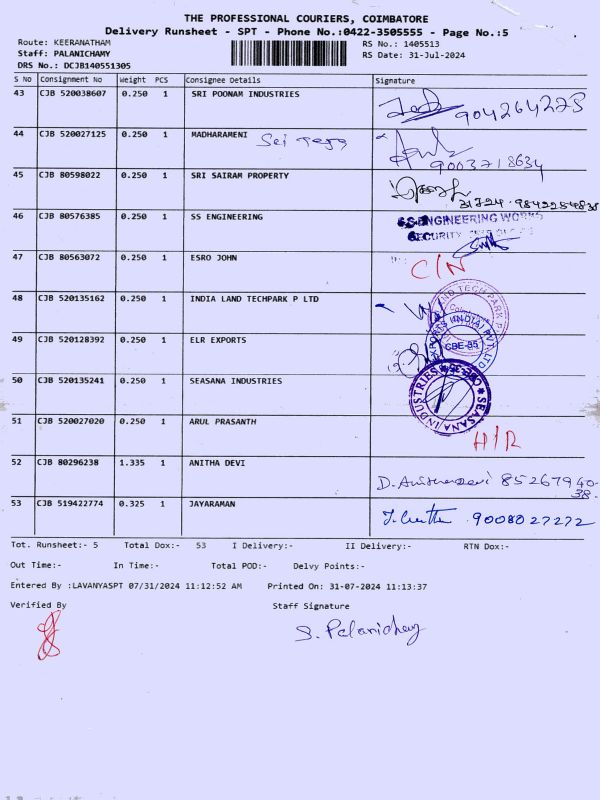 THE PROFESSIONAL COURIERS, COIMBATORE
Delivery Runsheet - SPT - Phone No.:0422-3505555 - Page No.:5
Route: KEERANATHAM RS No.: 1405513
Staff: PALANICHAMY RS Date: 31-Jul-2024
DRS No.: DCJB140551305
S No Consignment No Weight PCS Consignee Details Signature
43 CJB 520038607 0.250 1 SRI POONAM INDUSTRIES 904264228
44 CJB 520027125 0.250 1 MADHARAMENI 9003718634
45 CJB 80598022 0.250 1 SRI SAIRAM PROPERTY 31724. 9842254838
46 CJB 80576385 0.250 1 SS ENGINEERING SS ENGINEERING WORKS
SECURITY
47 CJB 80563072 0.250 1 ESRO JOHN C/N
48 CJB 520135162 0.250 1 INDIA LAND TECHPARK P LTD
49 CJB 520128392 0.250 1 ELR EXPORTS CBE-35
50 CJB 520135241 0.250 1 SEASANA INDUSTRIES SEASANA INDUSTRIES
51 CJB 520027020 0.250 1 ARUL PRASANTH H/R
52 CJB 80296238 1.335 1 ANITHA DEVI D. 8526794038
53 CJB 519422774 0.325 1 JAYARAMAN 9008027272
Tot. Runsheet:- 5 Total Dox:- 53 I Delivery:- II Delivery:- RTN Dox:-
Out Time:- In Time:- Total POD:- Delvy Points:-
Entered By :LAVANYASPT 07/31/2024 11:12:52 AM Printed On: 31-07-2024 11:13:37
Verified By Staff Signature
S. Palanichamy